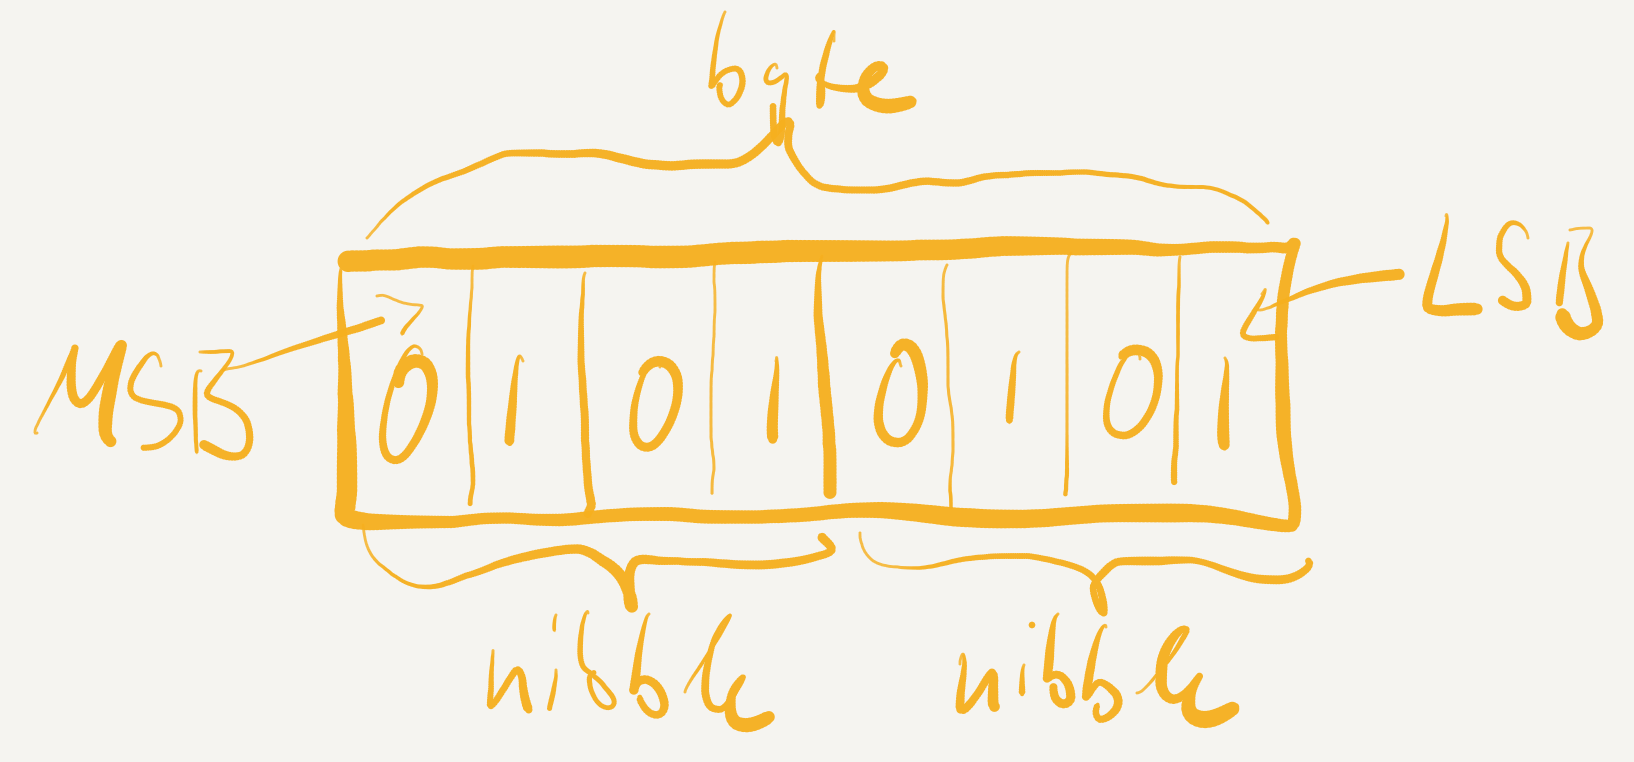 byte
LSB
MSB
0 1 0 1 0 1 0 1
nibble nibble